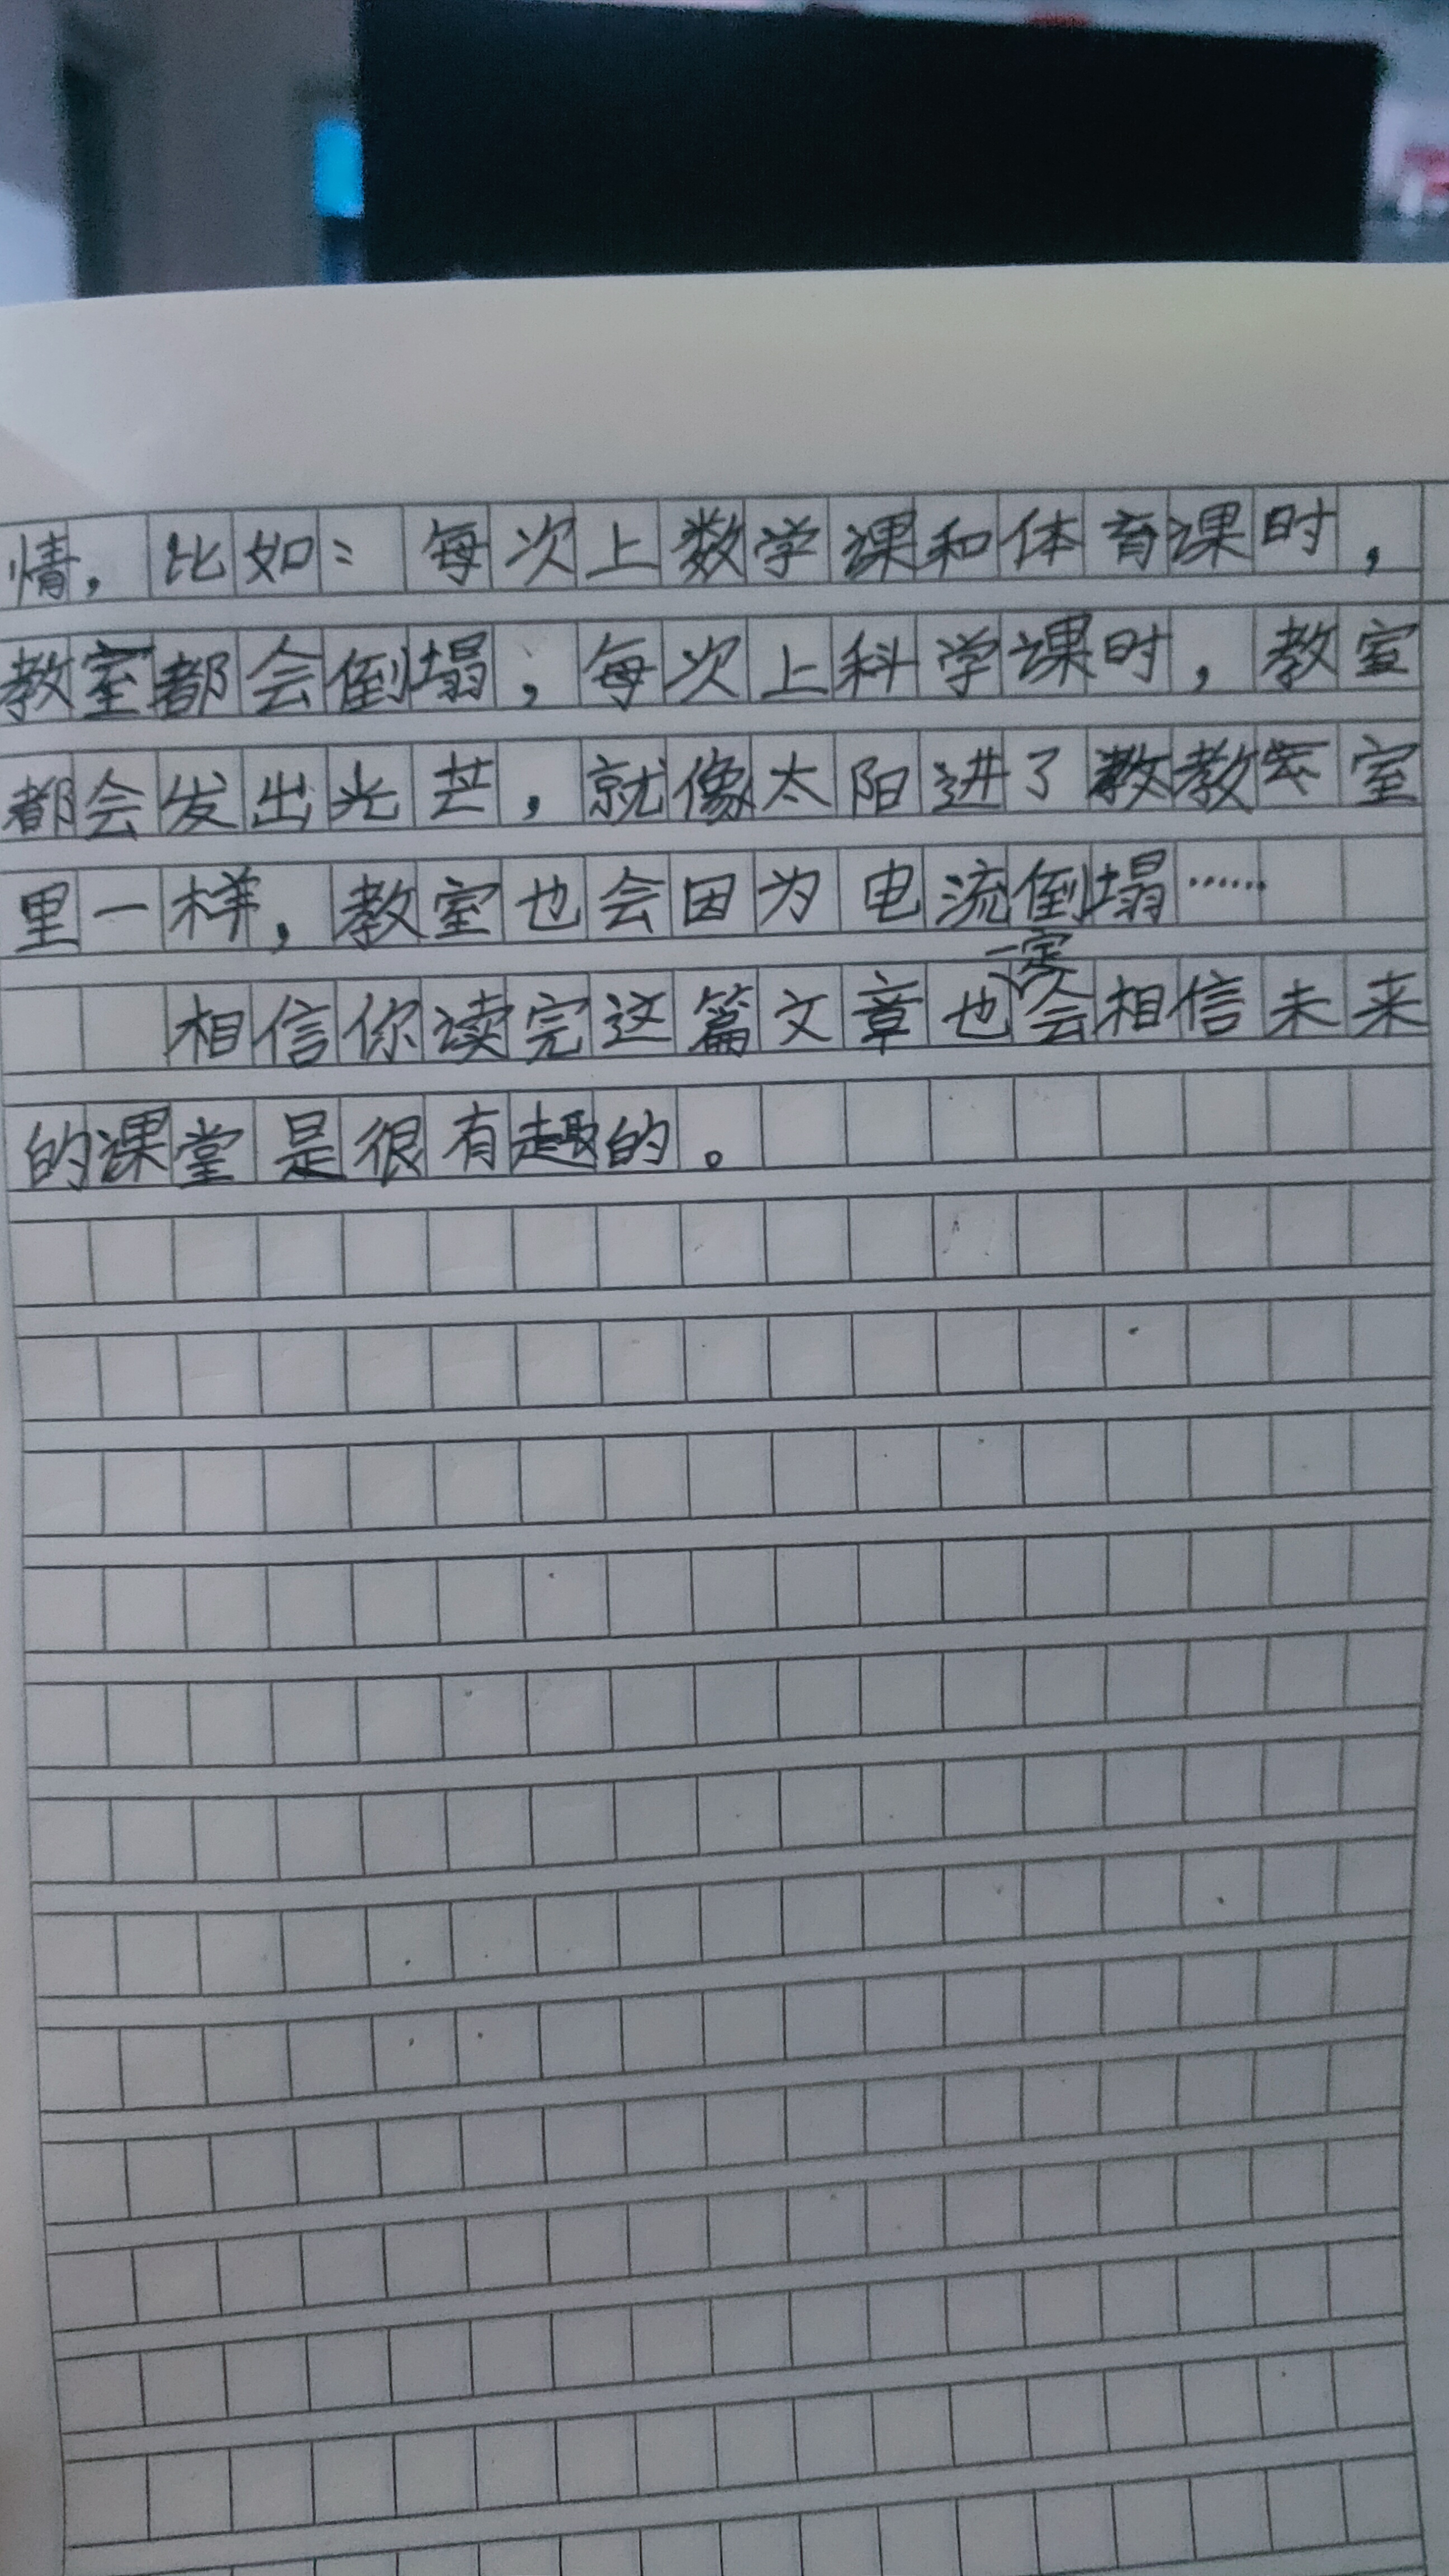 情，比如：每次上数学课和体育课时，
教室都会倒塌；每次上科学课时，教室
都会发出光芒，就像太阳进了教教室
里一样，教室也会因为电流倒塌……
相信你读完这篇文章也一定会相信未来
的课堂是很有趣的。